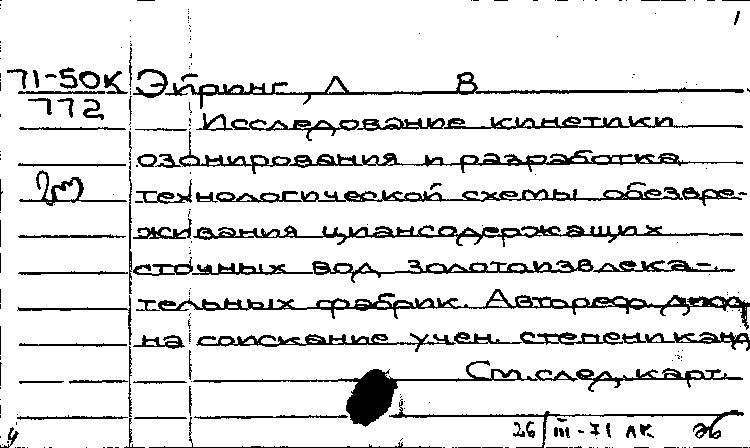 1
71-50К Эйринг, Л В
772
Исследование кинетики
озонирования и разработка
технологической схемы обезвре-
живания циансодержащих
сточных вод золотоизвлека-
тельных фабрик. Автореф. дисс
на соискание учен. степени канд
См. след. карт.
26/III-71 АК